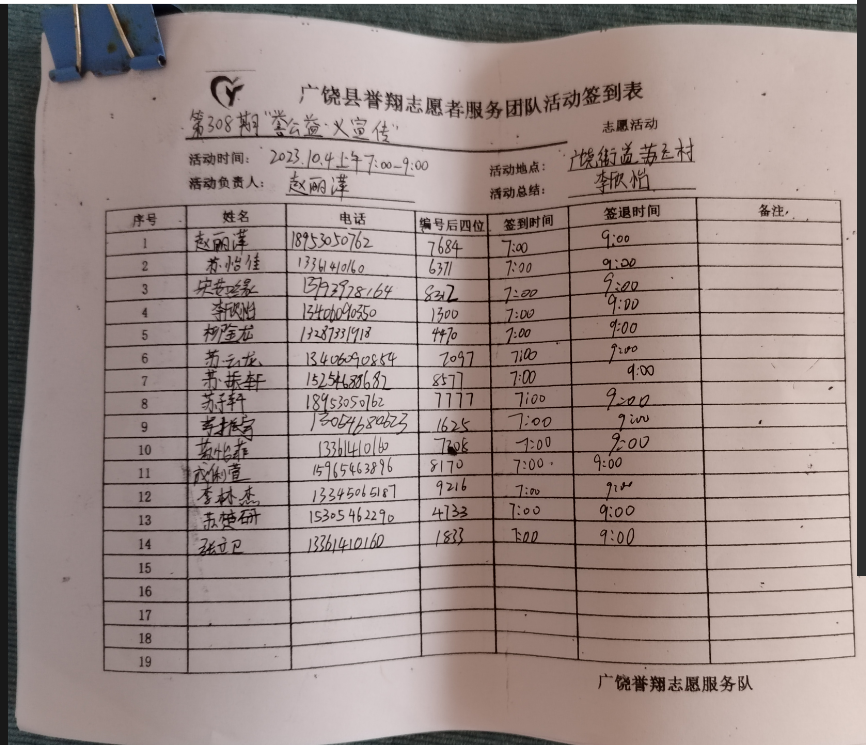 广饶县誉翔志愿者服务团队活动签到表
第308期"誉公益·义宣传" 志愿活动
活动时间： 2023.10.4上午7:00-9:00 活动地点： 广饶街道苏王村
活动负责人： 赵丽萍 活动总结： 李欣怡
序号 姓名 电话 编号后四位 签到时间 签退时间 备注
1 赵丽萍 18953050762 7684 7:00 9:00
2 苏怡佳 13361410160 6371 7:00 9:00
3 13793978164 8312 7:00 9:00
4 李欣怡 13406090350 1300 7:00 9:00
5 柳金龙 13287331918 4470 7:00 9:00
6 苏云龙 13406090854 7097 7:00 9:00
7 苏振轩 15254688682 8577 7:00 9:00
8 苏子轩 18953050762 7777 7:00 9:00
9 13054680523 1625 7:00 9:00
10 苏怡菲 13361410160 7:00 9:00
11 成俐萱 15965463896 8170 7:00 9:00
12 李林杰 13345065187 9216 7:00 9:00
13 苏梦研 15305462290 4733 7:00 9:00
14 张立卫 13361410160 1833 7:00 9:00
15
16
17
18
19
广饶誉翔志愿服务队